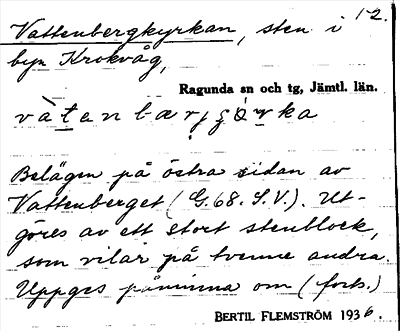 1-2.
Vattenbergkyrkan, sten i
byn Krokvåg,
Ragunda sn och tg, Jämtl. län.
Belägen på östra sidan av
Vattenberget (G.68. S.V.). Ut-
göres av ett stort stenblock,
som vilar på tvenne andra.
Uppges påminna om (forts.)
BERTIL FLEMSTRÖM 1936.